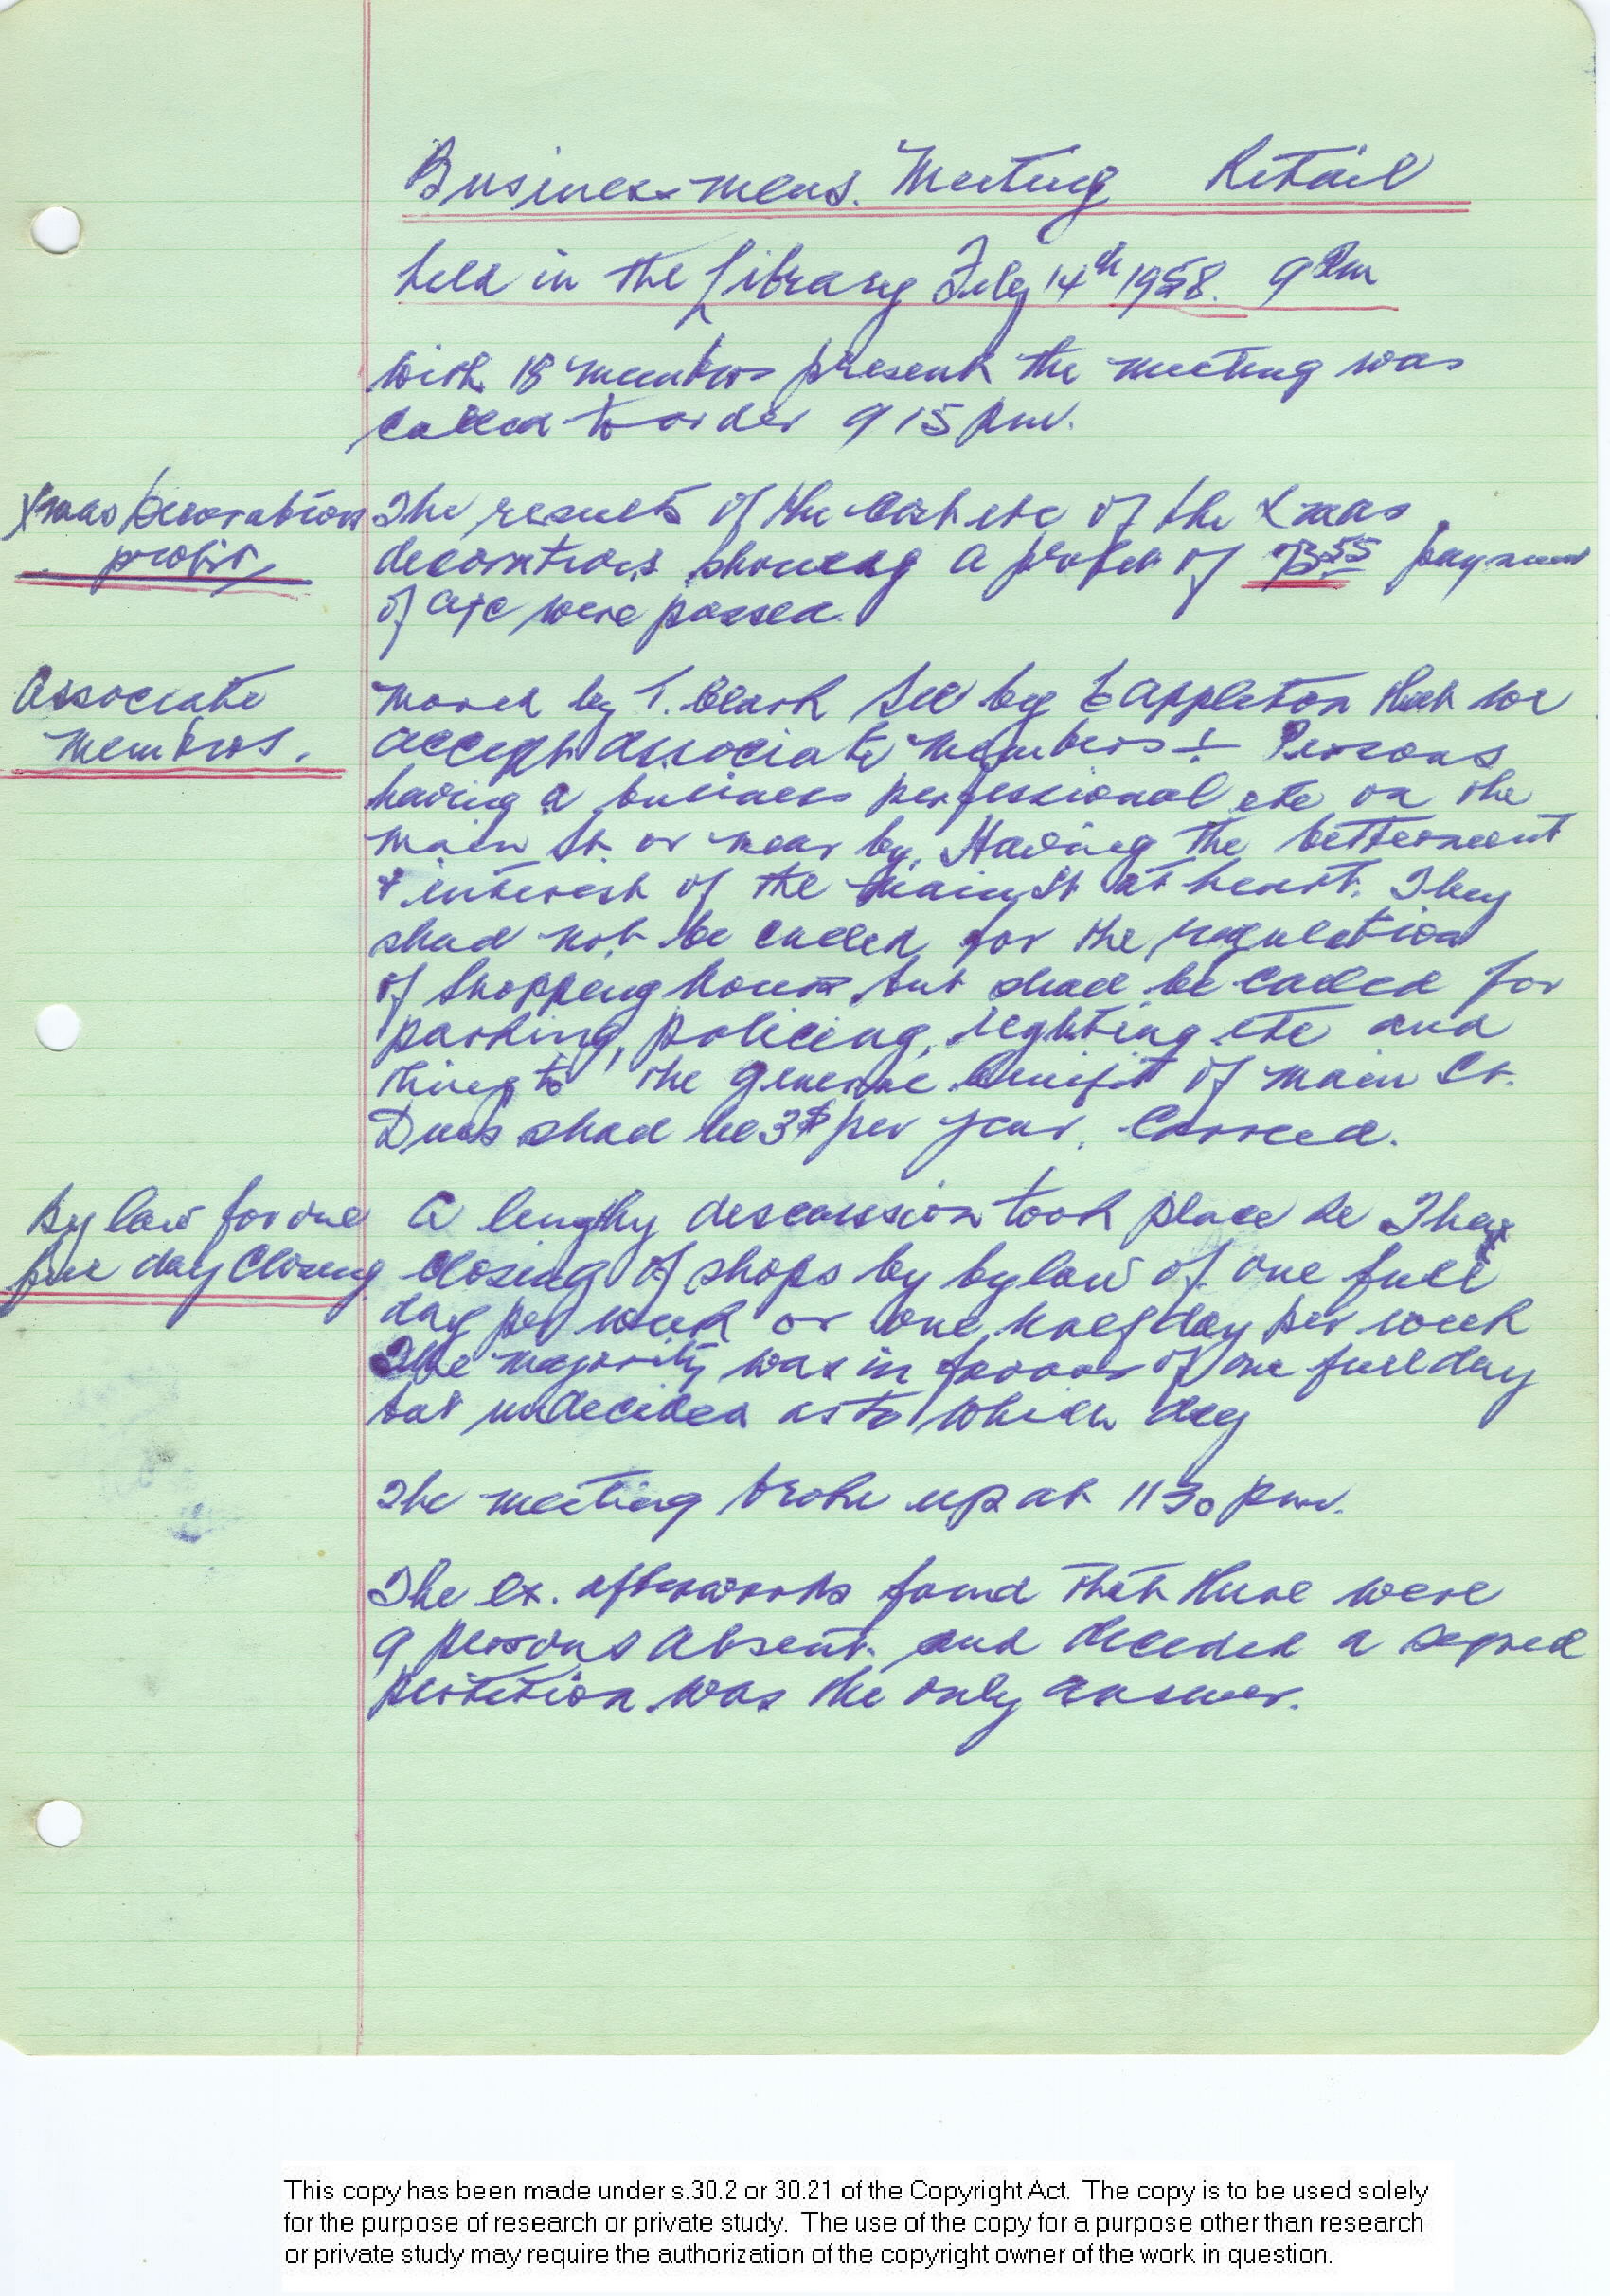 Businessmens. Meeting Retail
held in the Library July 14th 1958. 9 Pm
With 18 members present the meeting was
called to order 9 15 pm.
Xmas Decorations
profit
The results of the cost etc of the Xmas
decorations showing a profit of 55 payment
of a/c were passed.
Associate
members.
Moved by T. Clark Sec by E Appleton that we
accept associate members Persons
having a business perfessional etc on the
main St. or near by, Having the betterment
& interest of the Main St at heart. They
shall not be called for the regulation
of shopping hours but shall be called for
parking, policing, lighting etc and
things to the general benifit of main St.
Dues shall be 3$ per year. Carried.
By law for one
full day Closing
A lengthy descussion took place re The
closing of shops by bylaw of one full
day per week or one half day per week
The majority was in favour of one full day
but undecided as to which day
The meeting broke up at 11 30 pm.
The ex. afterwards found that there were
9 persons absent. and decided a signed
petition was the only answer.
This copy has been made under s.30.2 or 30.21 of the Copyright Act. The copy is to be used solely
for the purpose of research or private study. The use of the copy for a purpose other than research
or private study may require the authorization of the copyright owner of the work in question.